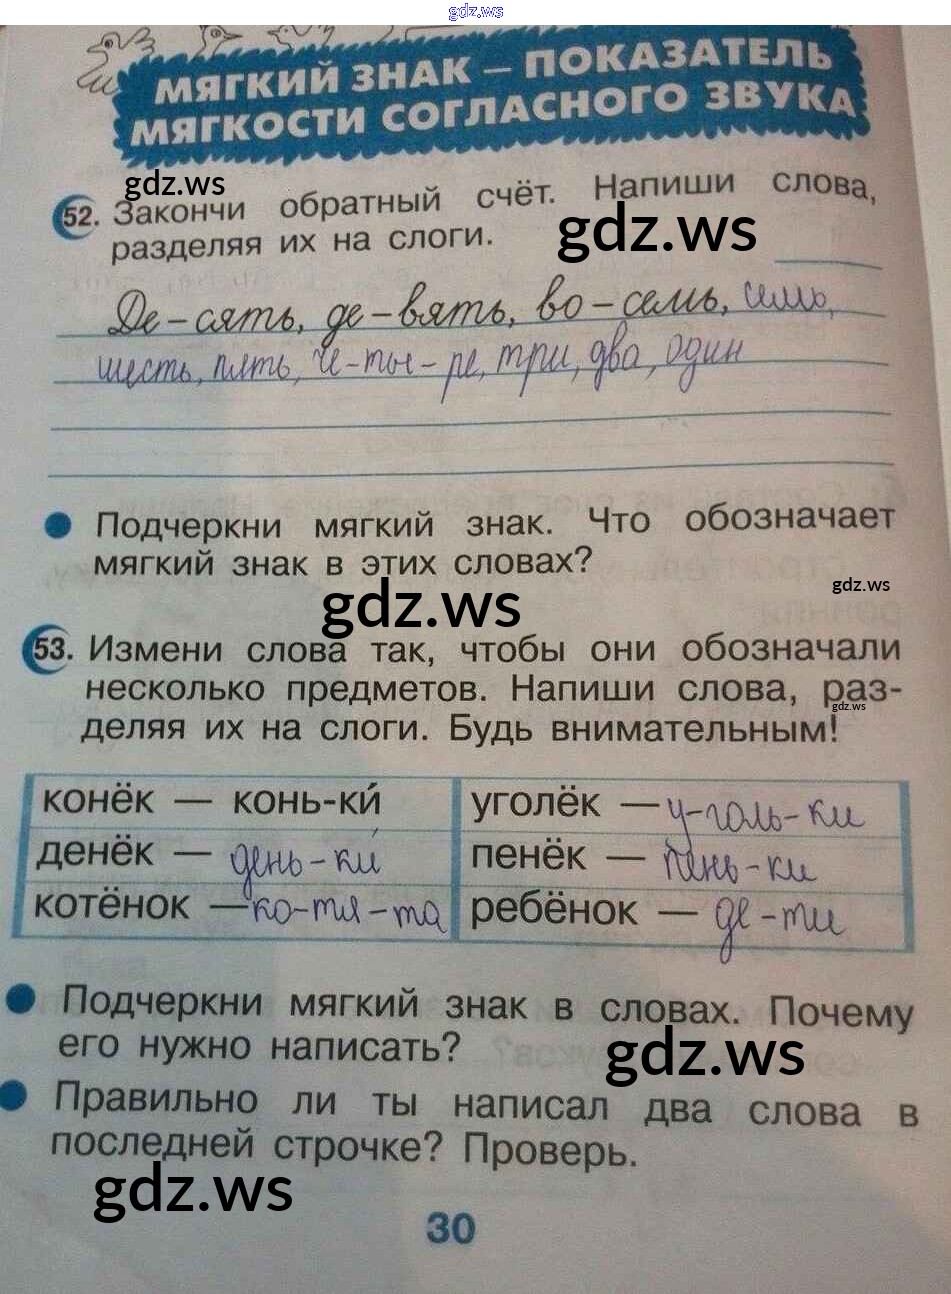 gdz.ws
МЯГКИЙ ЗНАК – ПОКАЗАТЕЛЬ
МЯГКОСТИ СОГЛАСНОГО ЗВУКА
gdz.ws
52. Закончи обратный счёт. Напиши слова,
gdz.ws
разделяя их на слоги.
Де-сять, де-вять, во-семь, семь,
шесть, пять, че-ты-ре, три, два, один
Подчеркни мягкий знак. Что обозначает
мягкий знак в этих словах?
gdz.ws
gdz.ws
53. Измени слова так, чтобы они обозначали
несколько предметов. Напиши слова, раз-
gdz.ws
деляя их на слоги. Будь внимательным!
конёк — конь-ки́ уголёк — у-голь-ки
денёк — день-ки́ пенёк — пень-ки
котёнок — ко-тя-та ребёнок — де-ти
Подчеркни мягкий знак в словах. Почему
его нужно написать?
gdz.ws
Правильно ли ты написал два слова в
последней строчке? Проверь.
gdz.ws
30